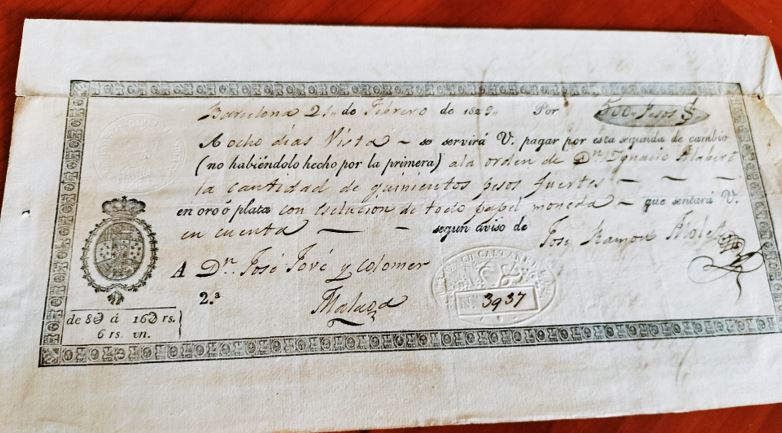 Barcelona 21 de Febrero de 1829 Por 500 Pesos $
A ocho días Vista se servirá V. pagar por esta segunda de cambio
(no habiéndolo hecho por la primera) a la orden de Dn. Ygnacio
la cantidad de quinientos pesos fuertes
en oro ó plata con esclucion de todo papel moneda que sentará V.
en cuenta segun aviso de
José Ramon
A Dn. José Jové y Colomer
2.a
Malaga
3937
de 8 á 16 rs.
6 rs. vn.